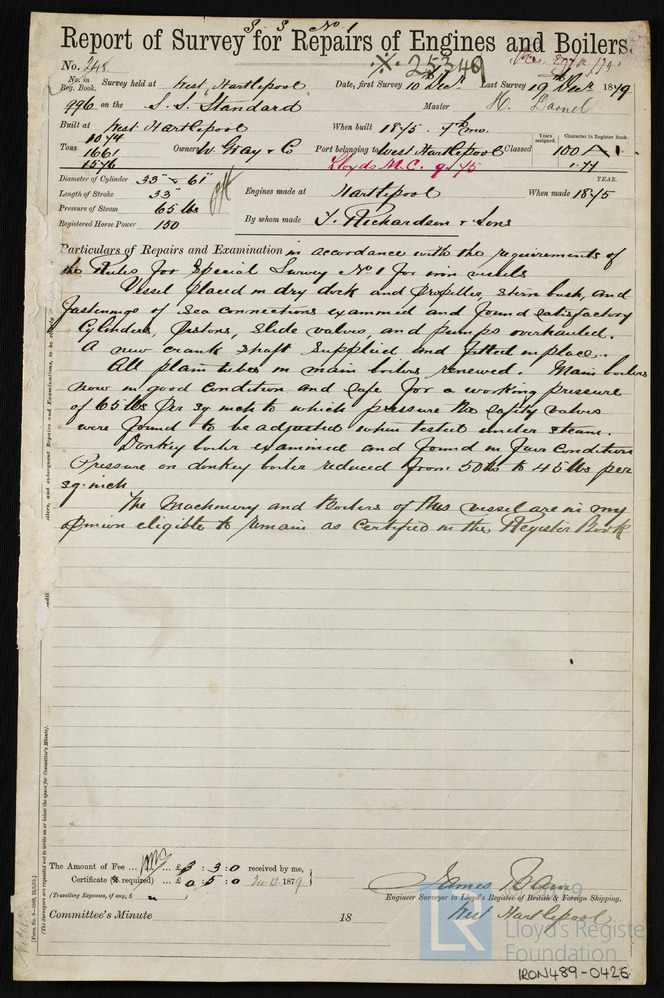 S. S. No 1
Report of Survey for Repairs of Engines and Boilers.
No. 248. 25349
No. in Reg. Book. Survey held at West Hartlepool Date, first Survey 10th Decr. Last Survey 19th Decr 1879
996 on the S. S. Standard Master H.
Built at West Hartlepool When built 1875. 7th mo. Years assigned. Character in Register Book.
Tons 1074 1661 1576 Owner W. Gray & C Port belonging to West Hartlepool Classed 100 A 1
Lloyds M.C. 9/75 1.77
YEAR.
Diameter of Cylinder 33" & 61"
Length of Stroke 33" Engines made at Hartlepool When made 1875
Pressure of Steam 65 lbs
Registered Horse Power 150 By whom made T. Richardson & Sons
Particulars of Repairs and Examination in accordance with the requirements of
the Rules for Special Survey No 1 for iron vessels
Vessel placed in dry dock and propeller, stern bush, and
fastenings of sea connections examined and found satisfactory
Cylinders, Pistons, Slide valves, and pumps overhauled.
A new crank shaft supplied and fitted in place.
All plain tubes in main boilers renewed. Main boilers
now in good condition and safe for a working pressure
of 65 lbs per sq inch to which pressure the safety valves
were found to be adjusted when tested under steam.
Donkey boiler examined and found in fair condition
Pressure on donkey boiler reduced from 50 lbs to 45 lbs per
sq. inch
The Machinery and Boilers of this vessel are in my
opinion eligible to remain as certified in the Register Book
The Amount of Fee ... £3 : 3 : 0 received by me,
Certificate (if required) ... £0 : 5 : 0 1879
(Travelling Expenses, if any, £ )
James
Engineer Surveyor to Lloyd's Register of British & Foreign Shipping.
West Hartlepool
Committee's Minute 18
(The Surveyors are requested not to write on or below the space for Committee's Minute).
LR
Lloyd's Register
Foundation
IRON489-0426